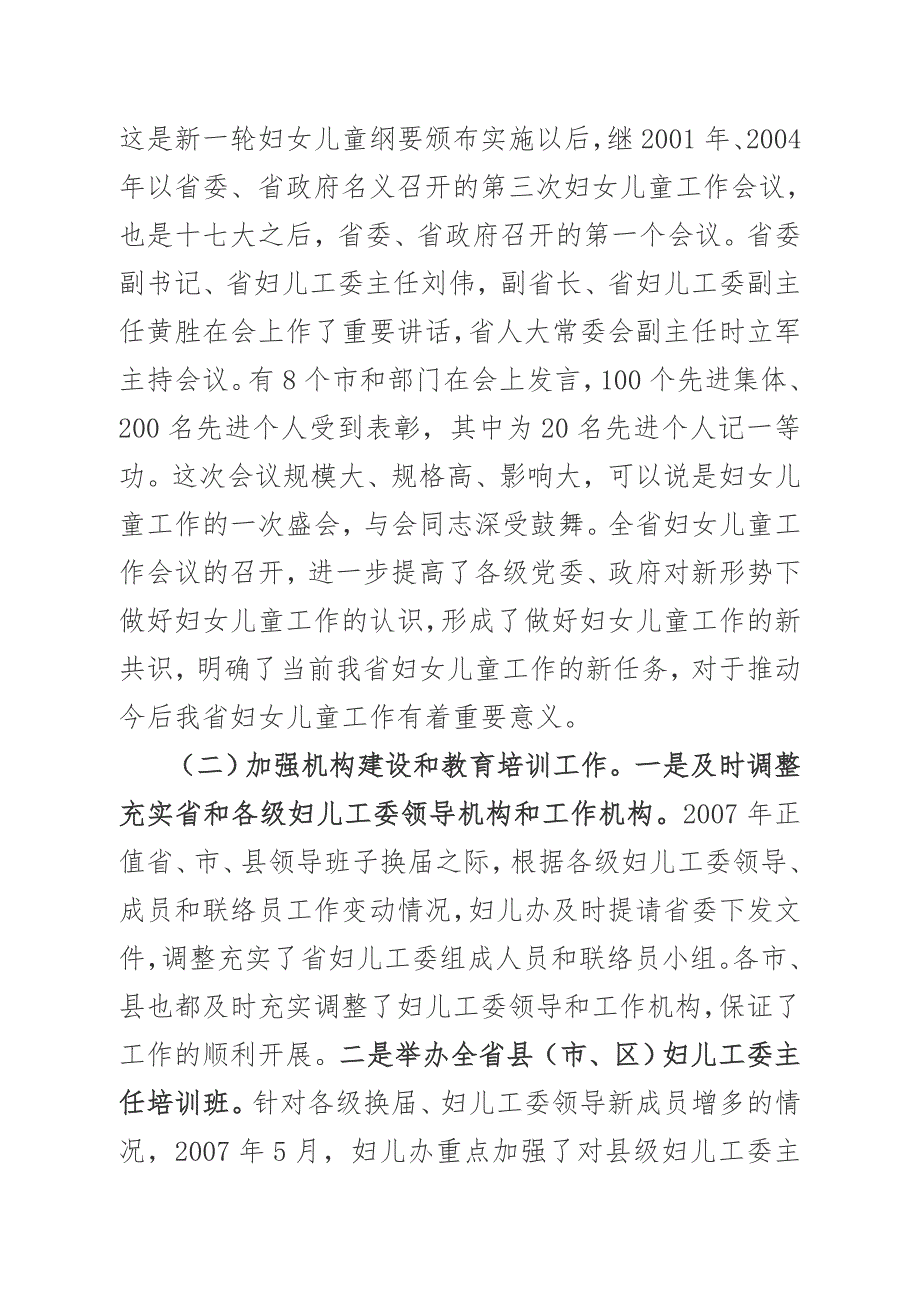 这是新一轮妇女儿童纲要颁布实施以后,继 2001 年、2004
年以省委、省政府名义召开的第三次妇女儿童工作会议，
也是十七大之后，省委、省政府召开的第一个会议。省委
副书记、省妇儿工委主任刘伟，副省长、省妇儿工委副主
任黄胜在会上作了重要讲话,省人大常委会副主任时立军
主持会议。有 8 个市和部门在会上发言,100 个先进集体、
200 名先进个人受到表彰，其中为 20 名先进个人记一等
功。这次会议规模大、规格高、影响大，可以说是妇女儿
童工作的一次盛会，与会同志深受鼓舞。全省妇女儿童工
作会议的召开，进一步提高了各级党委、政府对新形势下
做好妇女儿童工作的认识,形成了做好妇女儿童工作的新
共识，明确了当前我省妇女儿童工作的新任务，对于推动
今后我省妇女儿童工作有着重要意义。
（二）加强机构建设和教育培训工作。一是及时调整
充实省和各级妇儿工委领导机构和工作机构。2007 年正
值省、市、县领导班子换届之际，根据各级妇儿工委领导、
成员和联络员工作变动情况,妇儿办及时提请省委下发文
件,调整充实了省妇儿工委组成人员和联络员小组。各市、
县也都及时充实调整了妇儿工委领导和工作机构,保证了
工作的顺利开展。二是举办全省县（市、区）妇儿工委主
任培训班。针对各级换届、妇儿工委领导新成员增多的情
况，2007 年 5 月，妇儿办重点加强了对县级妇儿工委主